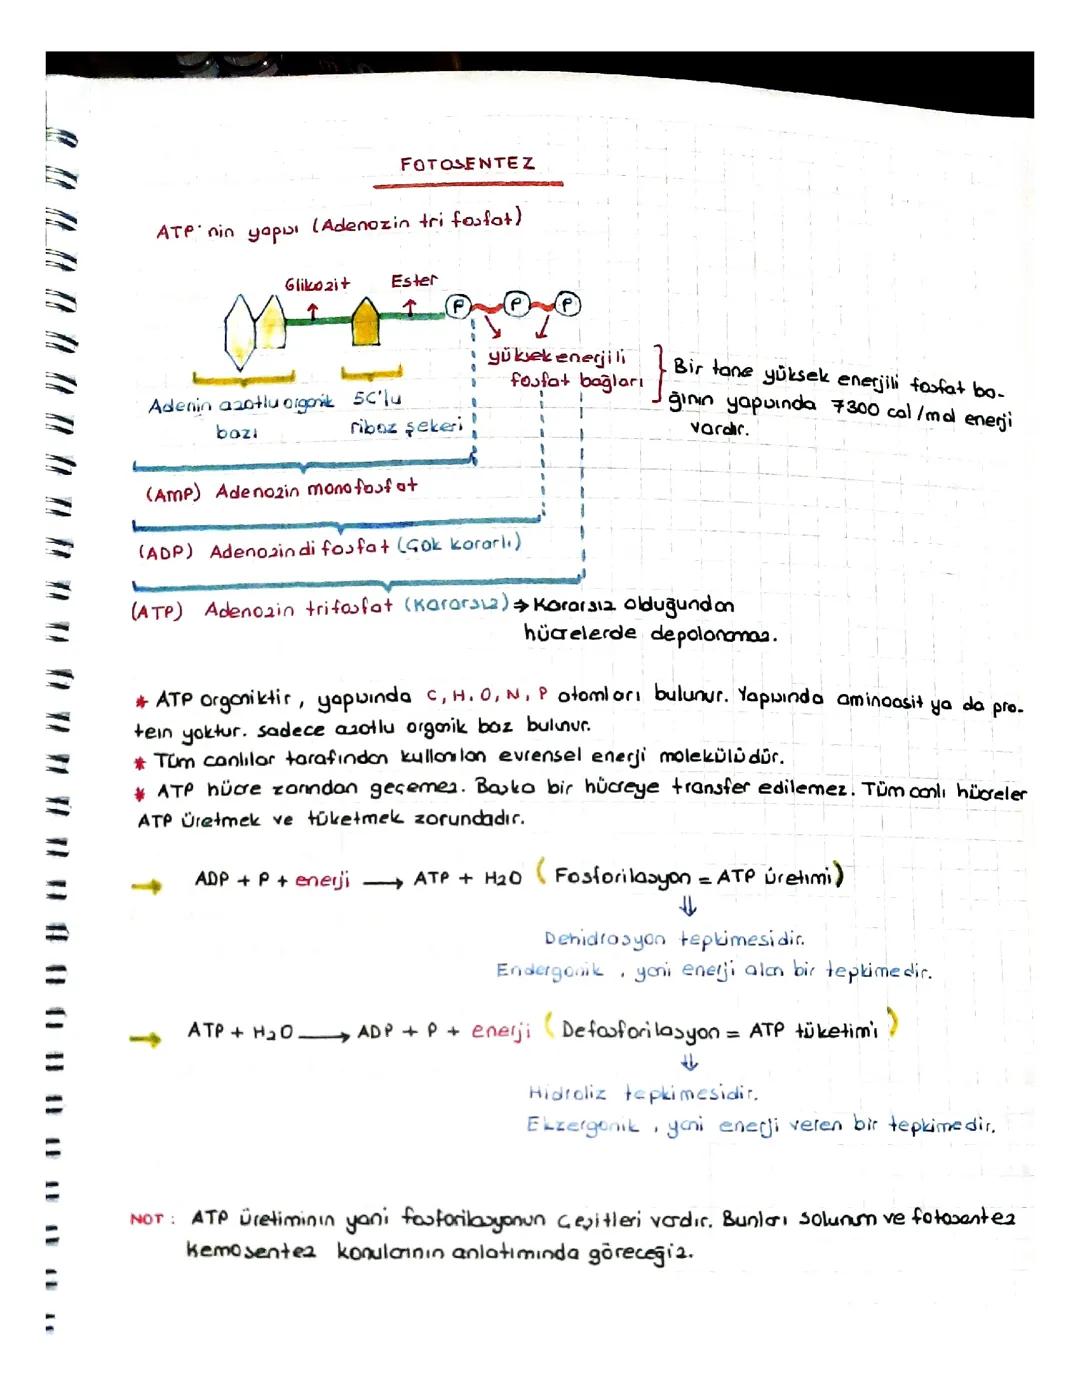 FOTOSENTEZ
ATP'nin yapısı (Adenozin tri fosfat)
Glikozit Ester
P P P
yüksek enerjili
fosfat bağları
Bir tane yüksek enerjili fosfat ba-
ğının yapısında 7300 cal/mol enerji
vardır.
Adenin azotlu organik
bazı
5C'lu
riboz şekeri
(AMP) Adenozin monofosfat
(ADP) Adenozin di fosfat (Çok kararlı)
(ATP) Adenozin trifosfat (Kararsız) ⇒ Kararsız olduğundan
hücrelerde depolanamaz.
* ATP organiktir, yapısında C, H, O, N, P atomları bulunur. Yapısında aminoasit ya da pro-
tein yoktur. sadece azotlu organik baz bulunur.
* Tüm canlılar tarafından kullanılan evrensel enerji molekülüdür.
* ATP hücre zarından geçemez. Başka bir hücreye transfer edilemez. Tüm canlı hücreler
ATP üretmek ve tüketmek zorundadır.
→ ADP + P + enerji → ATP + H2O (Fosforilasyon = ATP üretimi)
⇓
Dehidrasyon tepkimesidir.
Endergonik, yani enerji alan bir tepkimedir.
→ ATP + H2O → ADP + P + enerji (Defosforilasyon = ATP tüketimi)
⇓
Hidroliz tepkimesidir.
Ekzergonik, yani enerji veren bir tepkimedir.
NOT: ATP üretiminin yani fosforilasyonun çeşitleri vardır. Bunları solunum ve fotosentez
kemosentez konularının anlatımında göreceğiz.